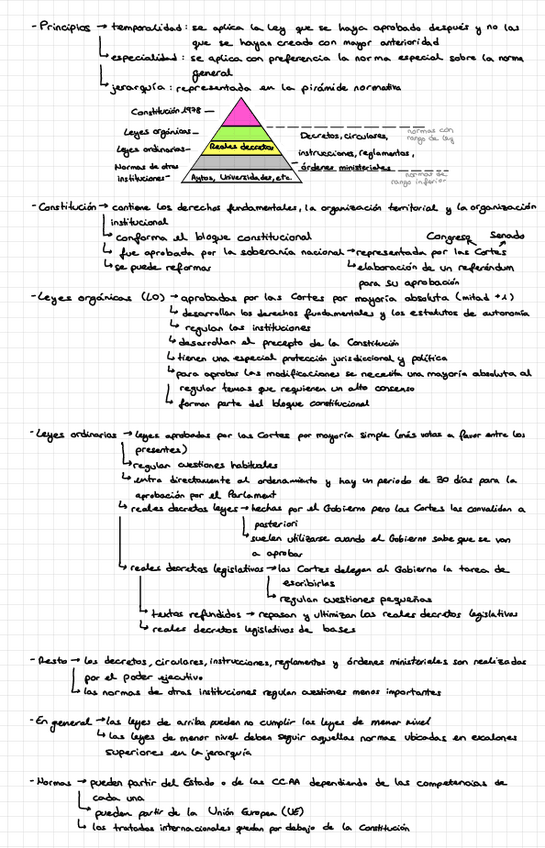 - Principios → temporalidad: se aplica la ley que se haya aprobado después y no las
que se hayan creado con mayor anterioridad
↳ especialidad: se aplica con preferencia la norma especial sobre la norma
general
↳ jerarquía: representada en la pirámide normativa
Constitución 1978 -
Leyes orgánicas -
Leyes ordinarias - Reales decretos
Decretos, circulares, normas con rango de ley
Normas de otras instituciones - Aytos, Universidades, etc.
instrucciones, reglamentos,
órdenes ministeriales normas de rango inferior
- Constitución → contiene los derechos fundamentales, la organización territorial y la organización
institucional
↳ conforma el bloque constitucional Congreso Senado
↳ fue aprobada por la soberanía nacional → representada por las Cortes
↳ se puede reformar ↳ elaboración de un referéndum
para su aprobación
- Leyes orgánicas (LO) → aprobadas por las Cortes por mayoría absoluta (mitad +1)
↳ desarrollan los derechos fundamentales y los estatutos de autonomía
↳ regulan las instituciones
↳ desarrollan el precepto de la Constitución
↳ tienen una especial protección jurisdiccional y política
↳ para aprobar las modificaciones se necesita una mayoría absoluta al
regular temas que requieren un alto consenso
↳ forman parte del bloque constitucional
- Leyes ordinarias → leyes aprobadas por las Cortes por mayoría simple (más votos a favor entre los
presentes)
↳ regulan cuestiones habituales
↳ entra directamente al ordenamiento y hay un periodo de 30 días para la
aprobación por el Parlament
↳ reales decretos leyes → hechas por el Gobierno pero las Cortes las convalidan a
posteriori
↳ suelen utilizarse cuando el Gobierno sabe que se van
a aprobar
↳ reales decretos legislativos → las Cortes delegan al Gobierno la tarea de
escribirlas
↳ regulan cuestiones pequeñas
↳ textos refundidos → repasan y ultimizan los reales decretos legislativos
↳ reales decretos legislativos de bases
- Resto → los decretos, circulares, instrucciones, reglamentos y órdenes ministeriales son realizadas
por el poder ejecutivo
↳ las normas de otras instituciones regulan cuestiones menos importantes
- En general → las leyes de arriba pueden no cumplir las leyes de menor nivel
↳ las leyes de menor nivel deben seguir aquellas normas ubicadas en escalones
superiores en la jerarquía
- Normas → pueden partir del Estado o de las CC.AA dependiendo de las competencias de
cada una
↳ pueden partir de la Unión Europea (UE)
↳ los tratados internacionales quedan por debajo de la Constitución